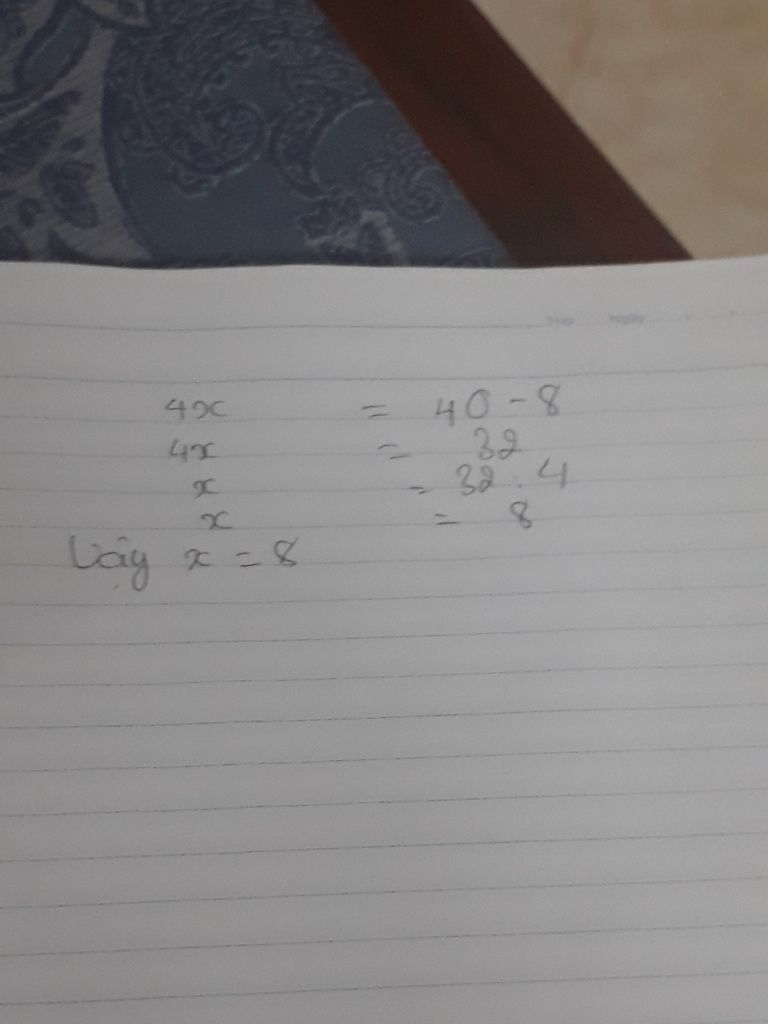 Thứ Ngày
4x = 40 - 8
4x = 32
x = 32 : 4
x = 8
Vậy x = 8